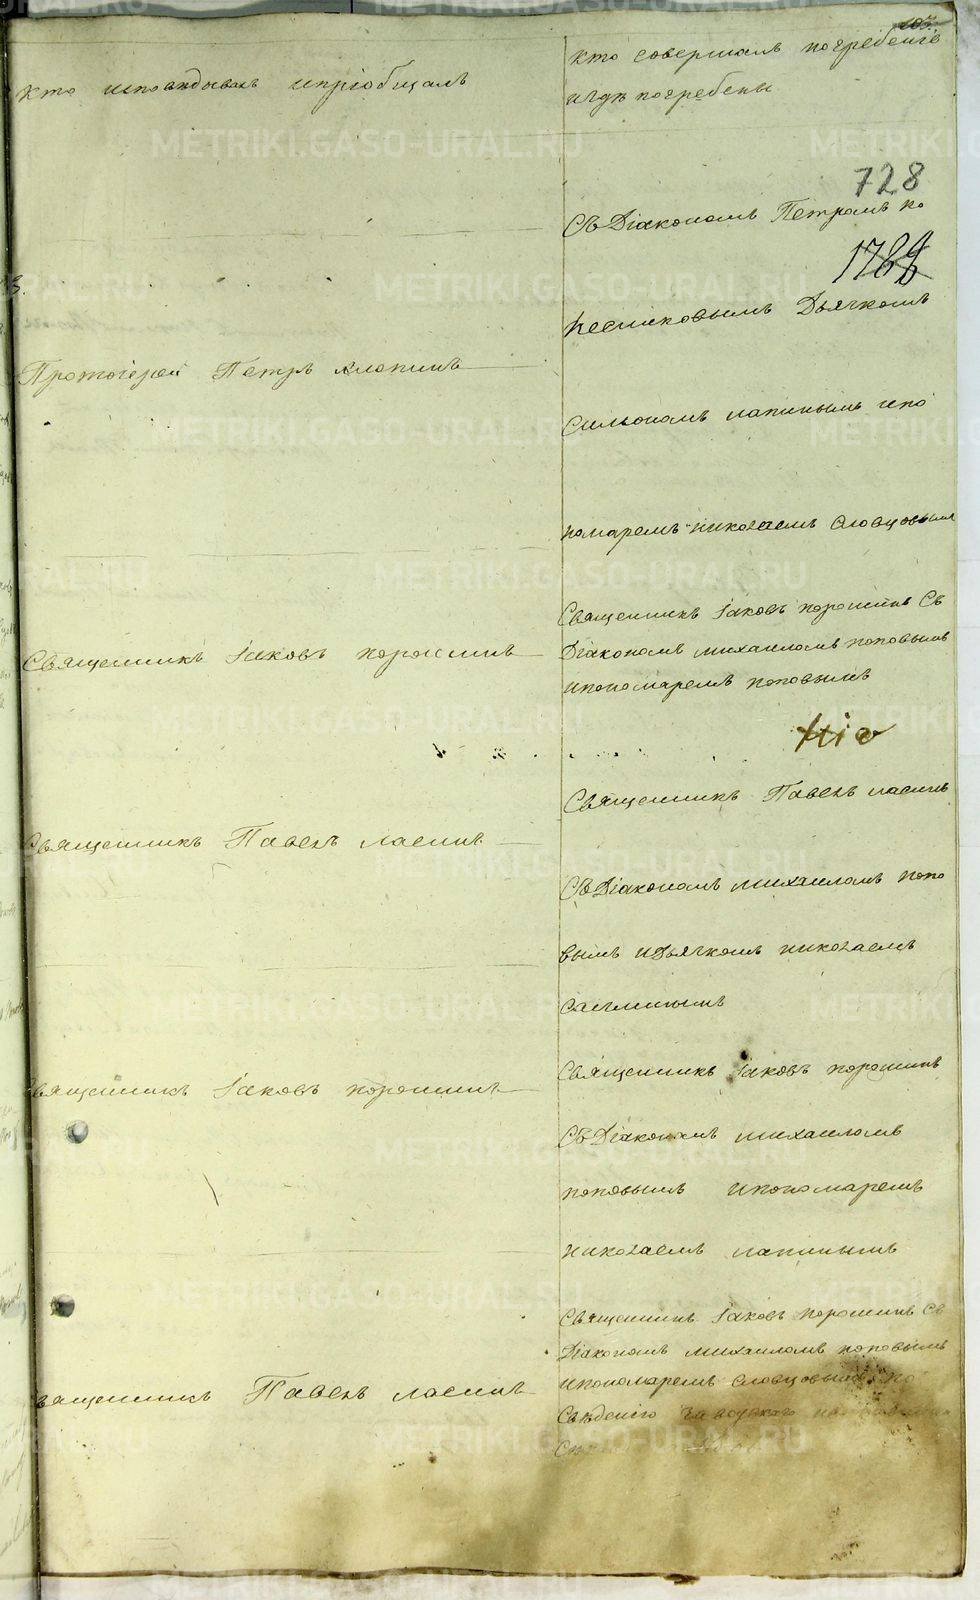 103.
кто исповѣдывалъ ипріобщалъ
кто совершалъ погребеніе
игдѣ погребены
728
Съ Діакономъ Петромъ ко
1762
песниковымъ Дьячкомъ
Протоіерей Петръ
лапинымъ ипо
помаремъ николаемъ словцовымъ
Священникъ Іаковъ порошинъ
Священникъ Іаковъ порошинъ Съ
Діакономъ михаиломъ поповымъ
ипономаремъ поповымъ
Священникъ Павелъ
Священникъ Павелъ
Съ Діакономъ михаиломъ попо
вымъ идьячкомъ николаемъ
Священникъ Іаковъ порошинъ
Священникъ Іаковъ порошинъ
Съ Діакономъ михаиломъ
поповымъ ипономаремъ
николаемъ лапинымъ
вященникъ Павелъ
Священникъ Іаковъ порошинъ Съ
Діакономъ михаиломъ поповымъ
ипономаремъ словцовымъ по
METRIKI.GASO-URAL.RU